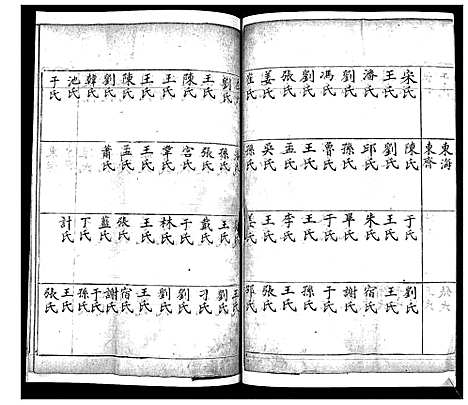 東海
東齊
宋氏 王氏 潘氏 劉氏 馮氏 劉氏 張氏 姜氏 崔氏
陳氏 劉氏 邱氏 孫氏 魯氏 王氏 孟氏 吳氏 孫氏
于氏 王氏 朱氏 畢氏 于氏 王氏 李氏 王氏 姜氏
劉氏 王氏 宿氏 謝氏 于氏 孫氏 王氏 張氏 邱氏
劉氏 王氏 陳氏 王氏 王氏 陳氏 劉氏 韓氏 池氏 于氏
孫氏 張氏 宫氏 覃氏 王氏 孟氏 蕭氏
王氏 戴氏 于氏 林氏 王氏 張氏 藍氏 丁氏 計氏
王氏 劉氏 刁氏 劉氏 劉氏 王氏 宿氏 謝氏 于氏 孫氏 王氏 張氏